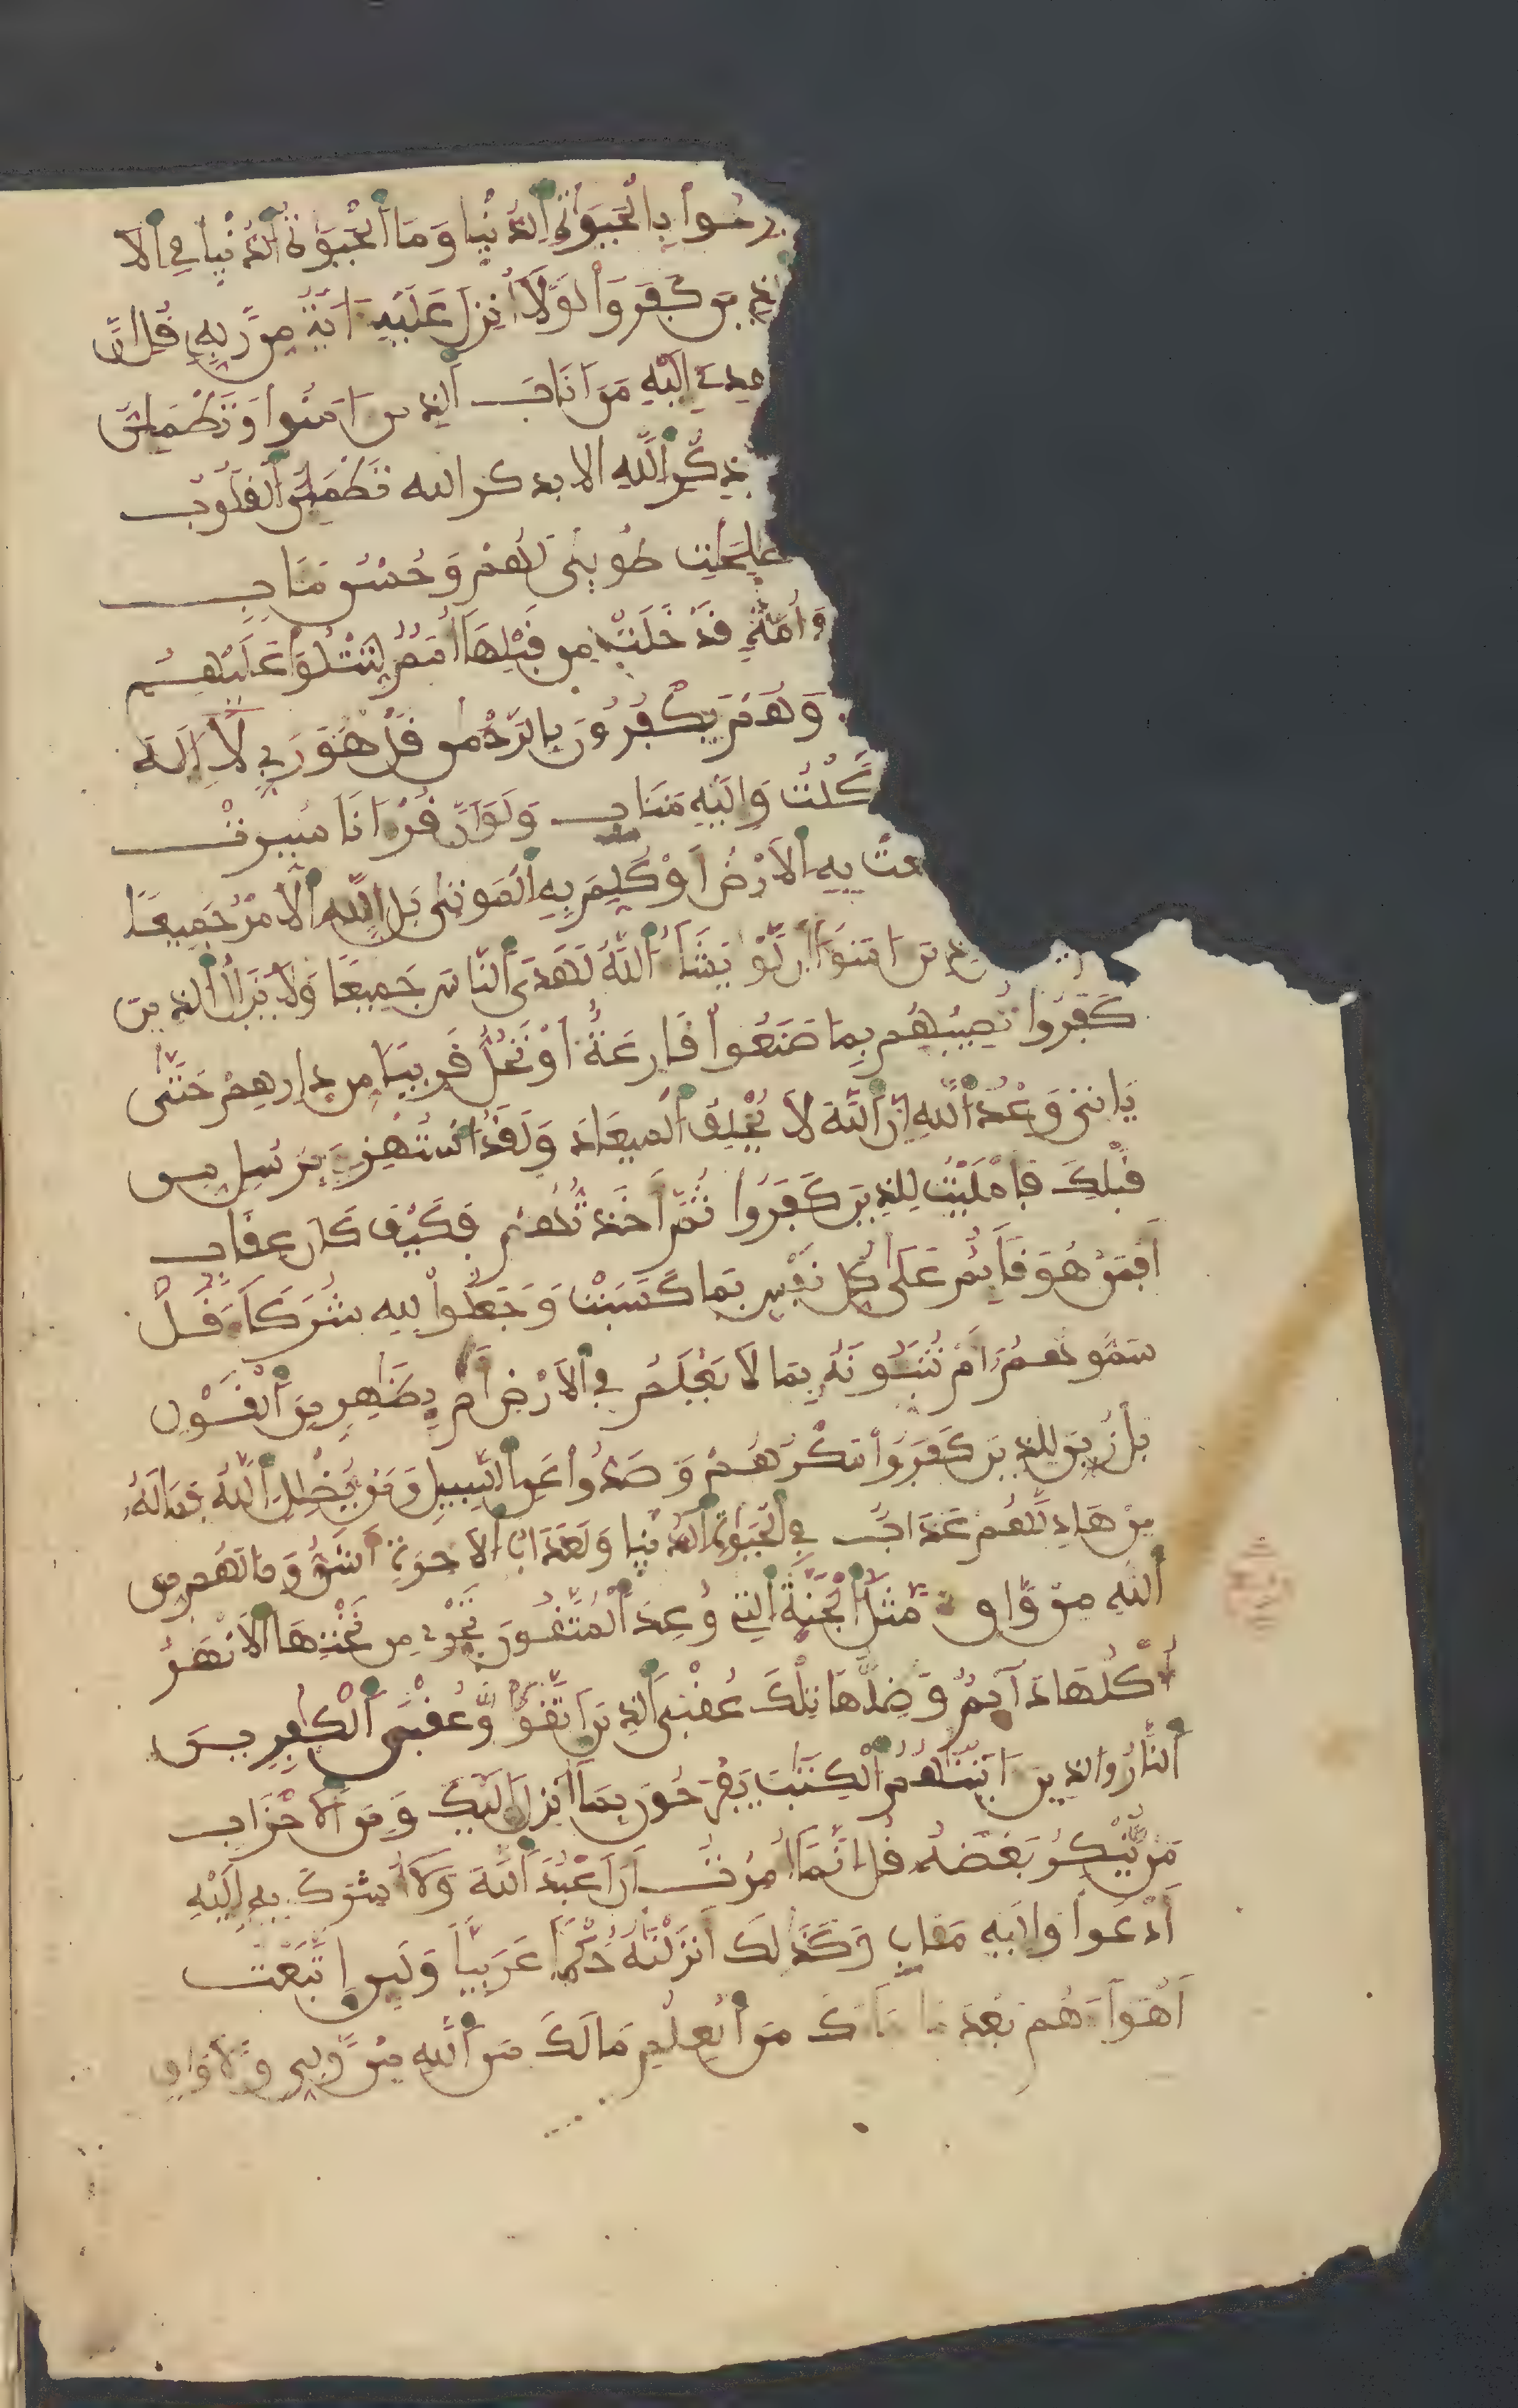 رحوا بالحيوة الدنيا وما الحيوة الدنيا في الا
ذين كفروا لولا انزل عليه اية من ربه قل ان
يهدي اليه من اناب الذين امنوا وتطمين
بذكر الله الا بذكر الله تطمين القلوب
طوبى لهم وحسن مئاب
امة قد خلت من قبلها امم لتتلوا عليهم
وهم يكفرون بالرحمن قل هو ربي لا اله
كلت واليه متاب ولو ان قرانا سيرت
عت به الارض او كلم به الموتى بل لله الامر جميعا
ذين امنوا ان لو يشاء الله لهدى الناس جميعا ولا يزال الذين
كفروا تصيبهم بما صنعوا قارعة او تحل قريبا من دارهم حتى
ياتي وعد الله ان الله لا يخلف الميعاد ولقد استهزئ برسل من
قبلك فامليت للذين كفروا ثم اخذتهم فكيف كان عقاب
افمن هو قايم على كل نفس بما كسبت وجعلوا لله شركاء قل
سموهم ام تنبونه بما لا يعلم في الارض ام بظاهر من القول
بل زين للذين كفروا مكرهم وصدوا عن السبيل ومن يضلل الله فما له
من هاد لهم عذاب في الحيوة الدنيا ولعذاب الاخرة اشق وما لهم من
الله من واق مثل الجنة التي وعد المتقون تجري من تحتها الانهر
اكلها دايم وظلها تلك عقبى الذين اتقوا وعقبى الكفرين
النار والذين اتينهم الكتب يفرحون بما انزل اليك ومن الاحزاب
من ينكر بعضه قل انما امرت ان اعبد الله ولا اشرك به اليه
ادعوا واليه مئاب وكذلك انزلنه حكما عربيا ولين اتبعت
اهواءهم بعد ما جاءك من العلم ما لك من الله من ولي ولا واق